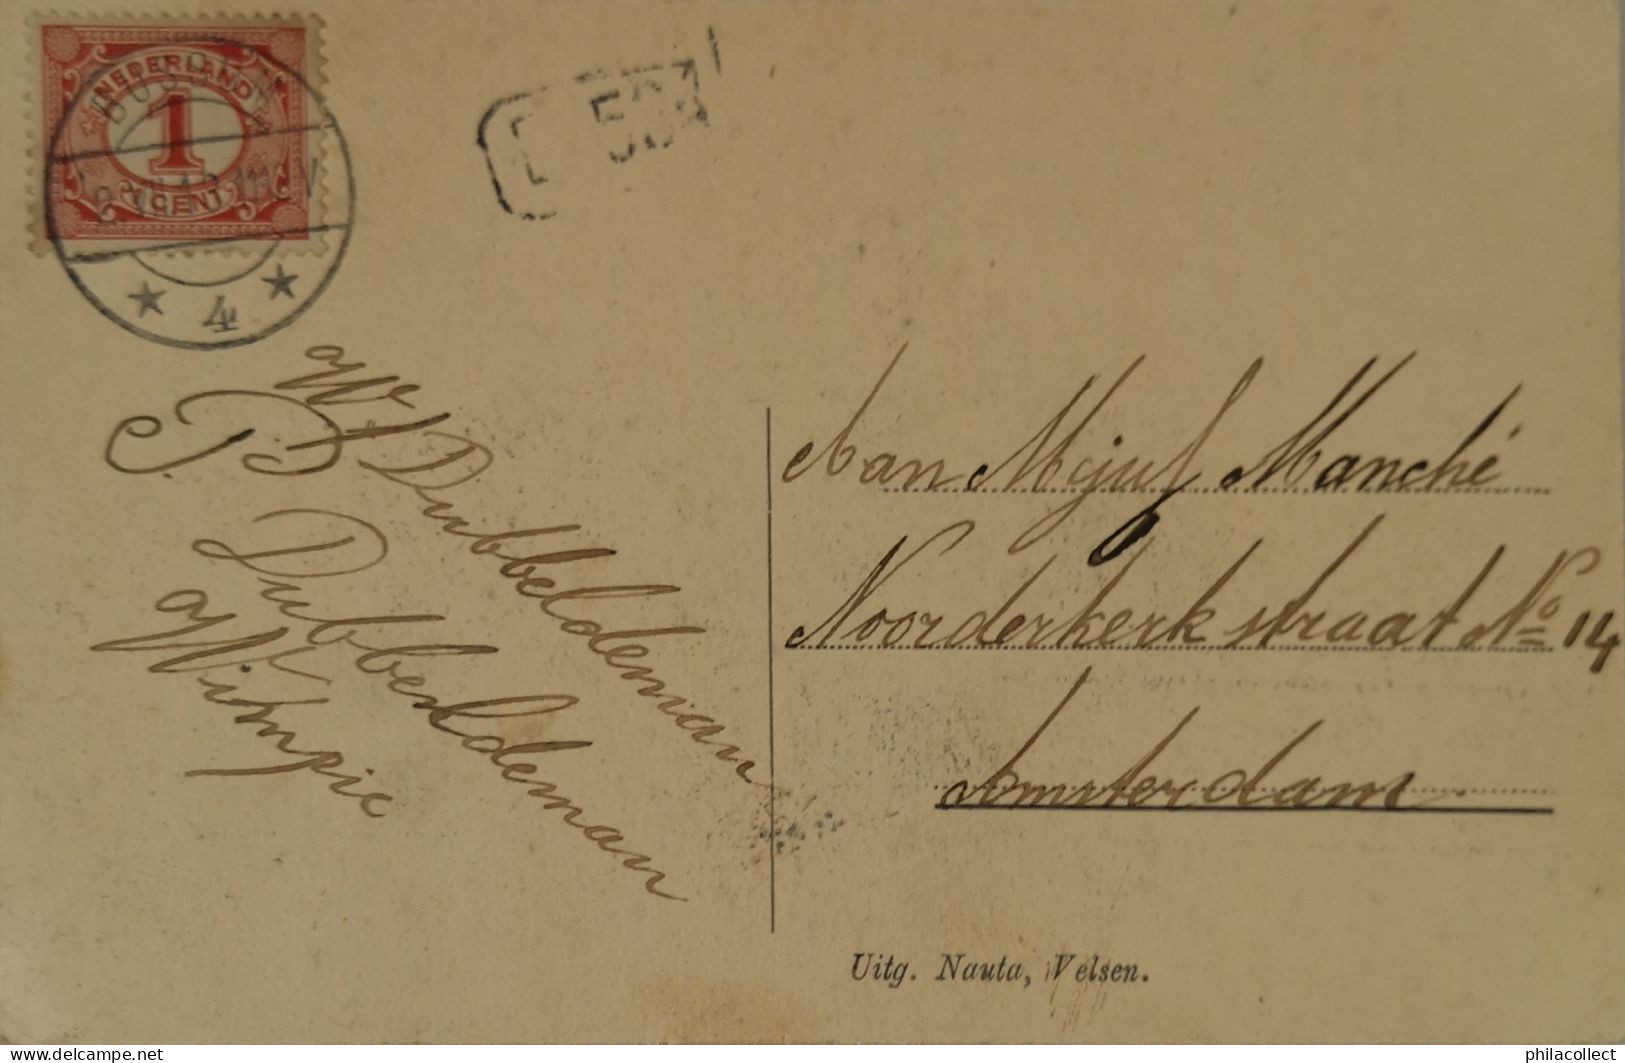 NEDERLAND
1
1 CENT
BUSSUM
4
W Dubbeldeman
P. Dubbeldeman
Wimpie
Aan Mejuf Manché
Noorderkerkstraat No 14
Amsterdam
Uitg. Nauta, Velsen.
philacollect